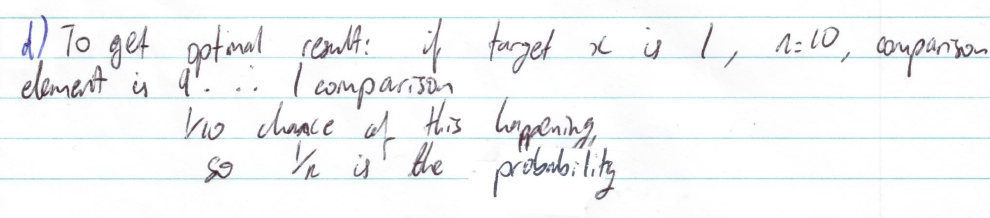 d) To get optimal result: if target x is 1, n=10, comparison
element is 9. ∴ 1 comparison
1/10 chance of this happening,
so 1/n is the probability